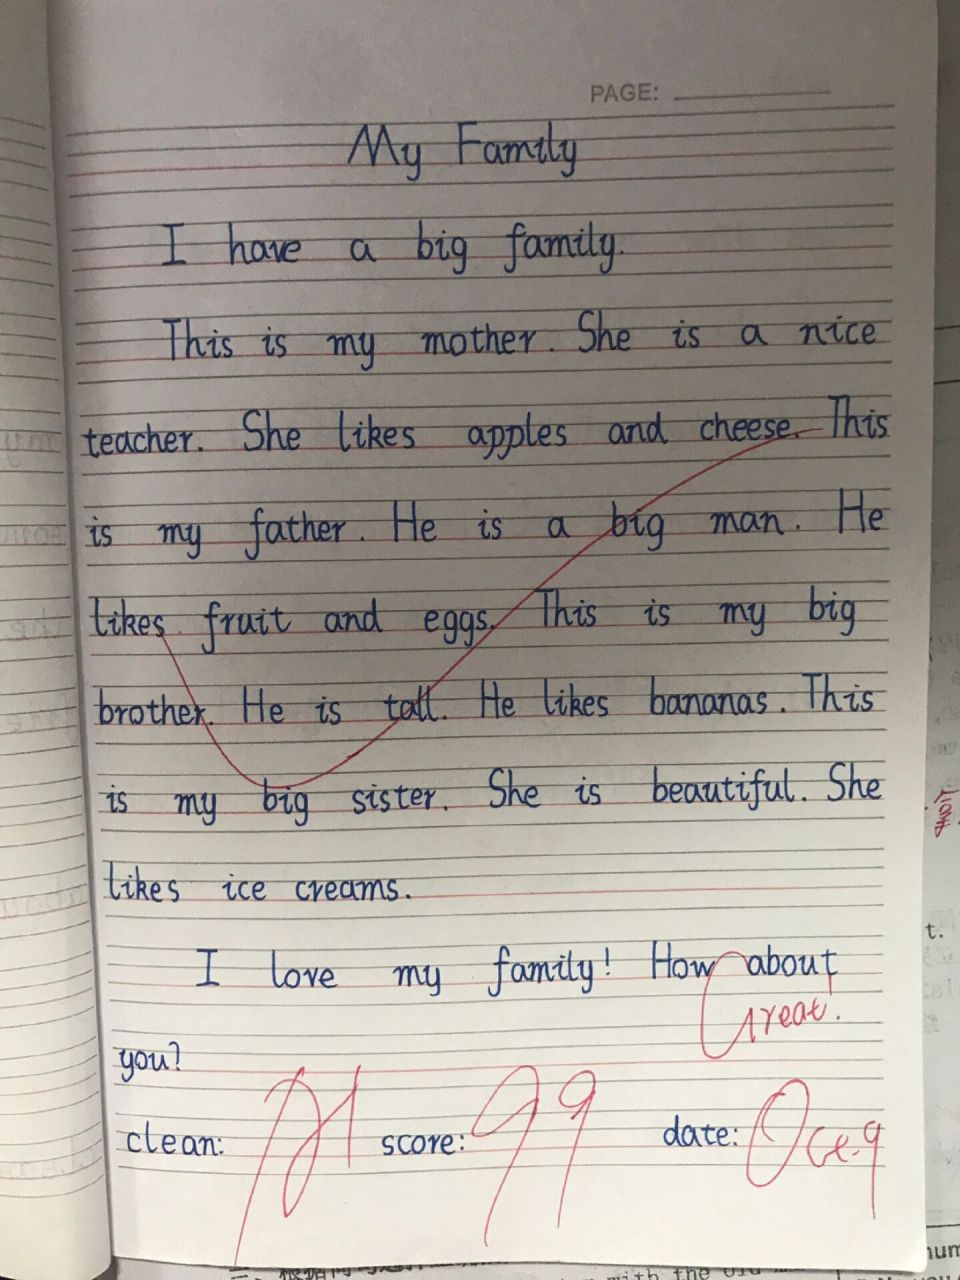 PAGE:
My Family
I have a big family.
This is my mother. She is a nice
teacher. She likes apples and cheese. This
is my father. He is a big man. He
likes fruit and eggs. This is my big
brother. He is tall. He likes bananas. This
is my big sister. She is beautiful. She
likes ice creams.
I love my family! How about
Great!
you?
clean: score: 99 date: